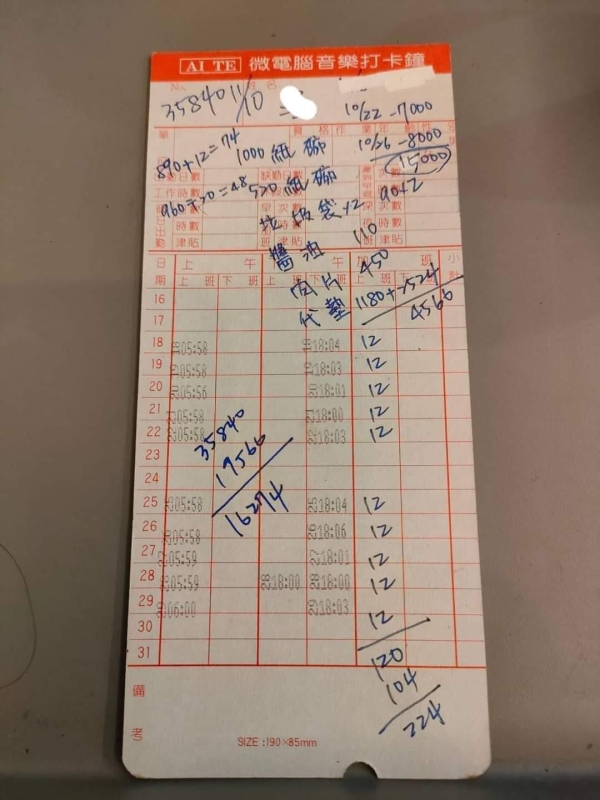 AI TE 微電腦音樂打卡鐘
No.
35840 11/10
10/22 -7000
10/26 -8000
15000
890÷12=74
960÷20=48
1000 紙碗
520 紙碗
90×2
垃圾袋×2
醬油 110
肉片 450
代墊 1180+2524
4566
工作時數
津貼
津貼
津貼
日期 上午 下午 加班 小計
上班 下班 上班 下班 上班 下班
16
17
18 05:58 18:04 12
19 05:58 18:03 12
20 05:56 18:01 12
21 05:58 18:00 12
22 05:58 18:03 12
23
35840
19566
16274
25 05:58 18:04 12
26 05:58 18:06 12
27 05:59 18:01 12
28 05:59 18:00 18:00 12
29 06:00 18:03 12
30
31
120
104
224
備考
SIZE :190×85mm